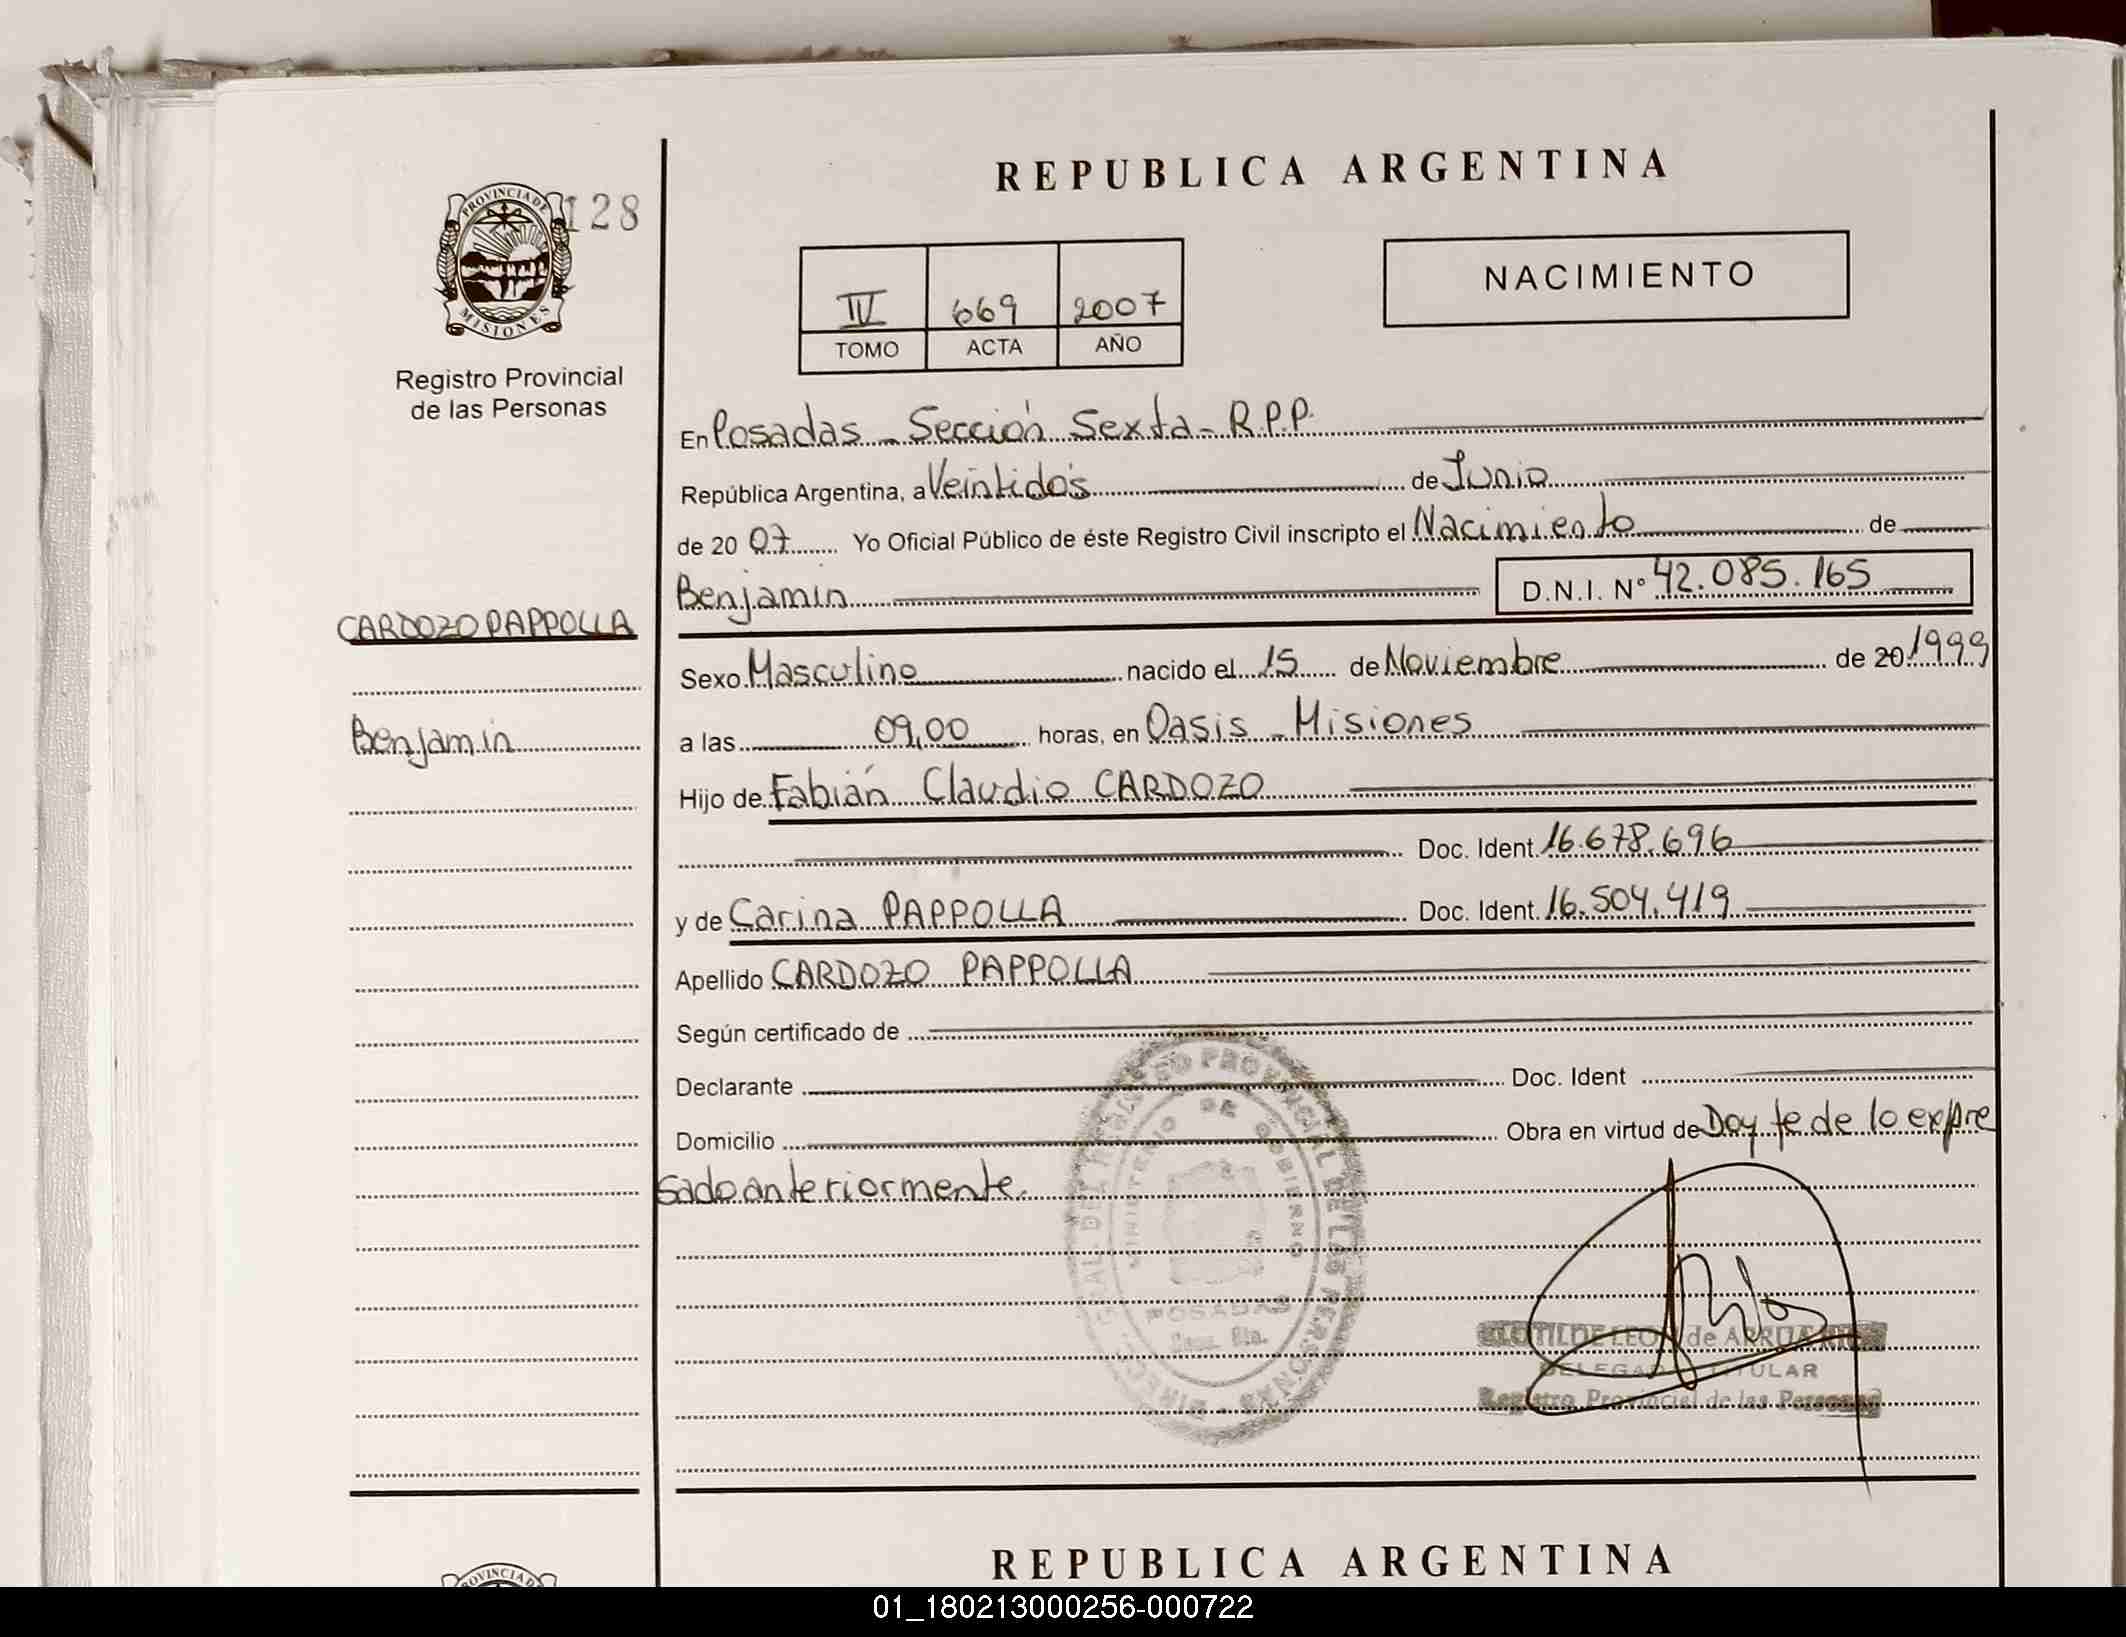 REPUBLICA ARGENTINA
PROVINCIA DE
MISIONES
128
Registro Provincial
de las Personas
IV 669 2007
TOMO ACTA AÑO
NACIMIENTO
En Posadas - Sección Sexta - R.P.P.
República Argentina, a Veintidós de Junio
de 20 07 Yo Oficial Público de éste Registro Civil inscripto el Nacimiento de
Benjamin D.N.I. Nº 42.085.165
CARDOZO PAPPOLLA
Benjamin
Sexo Masculino nacido el 15 de Noviembre de 20 1999
a las 09,00 horas, en Oasis - Misiones
Hijo de Fabián Claudio CARDOZO
Doc. Ident. 16.678.696
y de Carina PAPPOLLA Doc. Ident. 16.504.419
Apellido CARDOZO PAPPOLLA
Según certificado de
Declarante Doc. Ident
Domicilio Obra en virtud de Doy fe de lo expre
sado anteriormente.
PROVINCIAL DE LAS PERSONAS
MINISTERIO DE GOBIERNO
POSADAS
CLOTILDE LEON de ARRUA
DELEGADA TITULAR
Registro Provincial de las Personas
REPUBLICA ARGENTINA
PROVINCIA
01_180213000256-000722